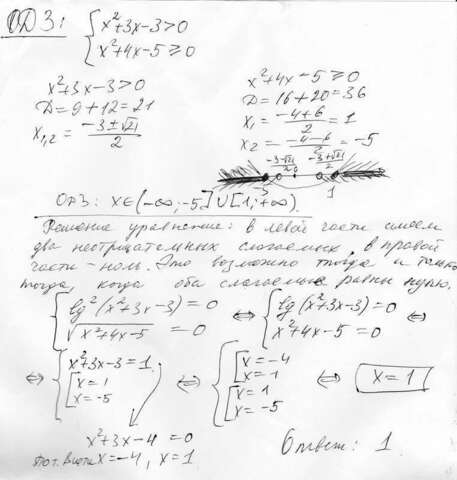 ОДЗ: { x²+3x-3>0
x²+4x-5≥0
x²+3x-3>0
D=9+12=21
x₁,₂ = (-3±√21)/2
x²+4x-5≥0
D=16+20=36
x₁ = (-4+6)/2 = 1
x₂ = (-4-6)/2 = -5
(-3-√21)/2 0 (-3+√21)/2
-5 1
ОДЗ: x∈(-∞;-5]∪[1;+∞)
Решение уравнение: в левой части имеем
два неотрицательных слагаемых, в правой
части - ноль. Это возможно тогда и только
тогда, когда оба слагаемые равны нулю.
{ lg²(x²+3x-3)=0 ⇔ { lg(x²+3x-3)=0 ⇔
√(x²+4x-5) = 0 x²+4x-5=0
⇔ { x²+3x-3=1 ⇔ { [ x=-4 ⇔ x=1
[ x=1 x=1
x=-5 [ x=1
x=-5
x²+3x-4=0
по т. Виета x=-4, x=1
Ответ: 1